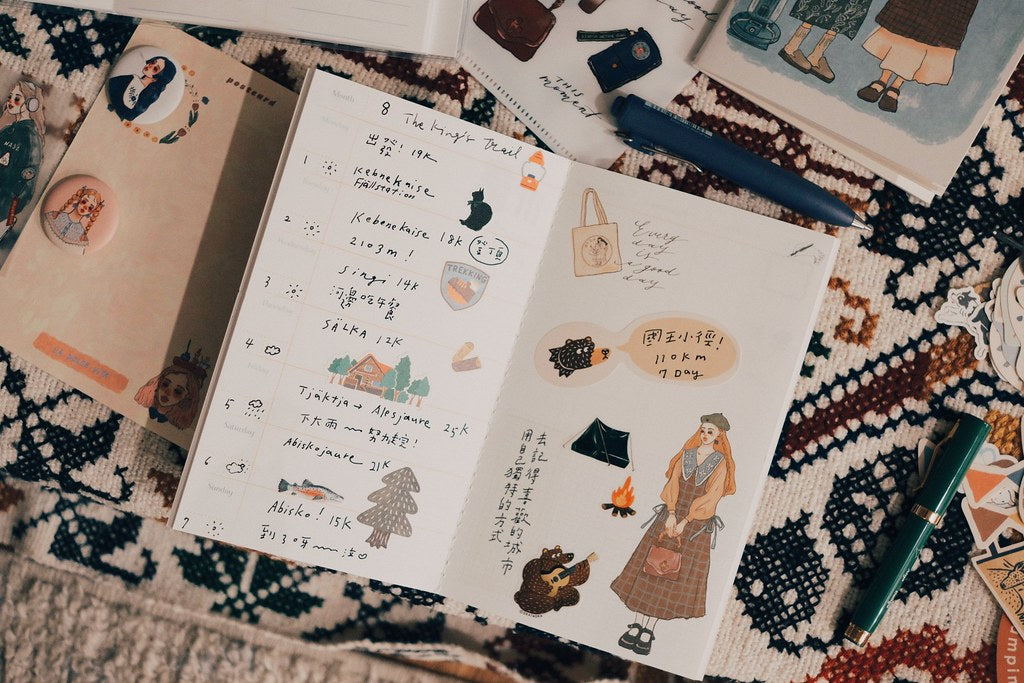 postcard
Month
8 The King's Trail
出發! 19K
1
Kebnekaise
Fjällstation
2
Kebenekaise 18K
2103m!
登頂
TREKKING
3
Singi 14K
河邊吃午餐
4
SÄLKA 12K
Tjäktja → Alesjaure 25K
5
下大雨~~努力走!
Saturday
Abiskojaure 21K
6
Sunday
Abisko! 15K
7
到了呀~~
Every
day
is
a good
day
國王小徑!
110km
7 Day
去記得喜歡的城市
用自己獨特的方式
THIS
moment
day